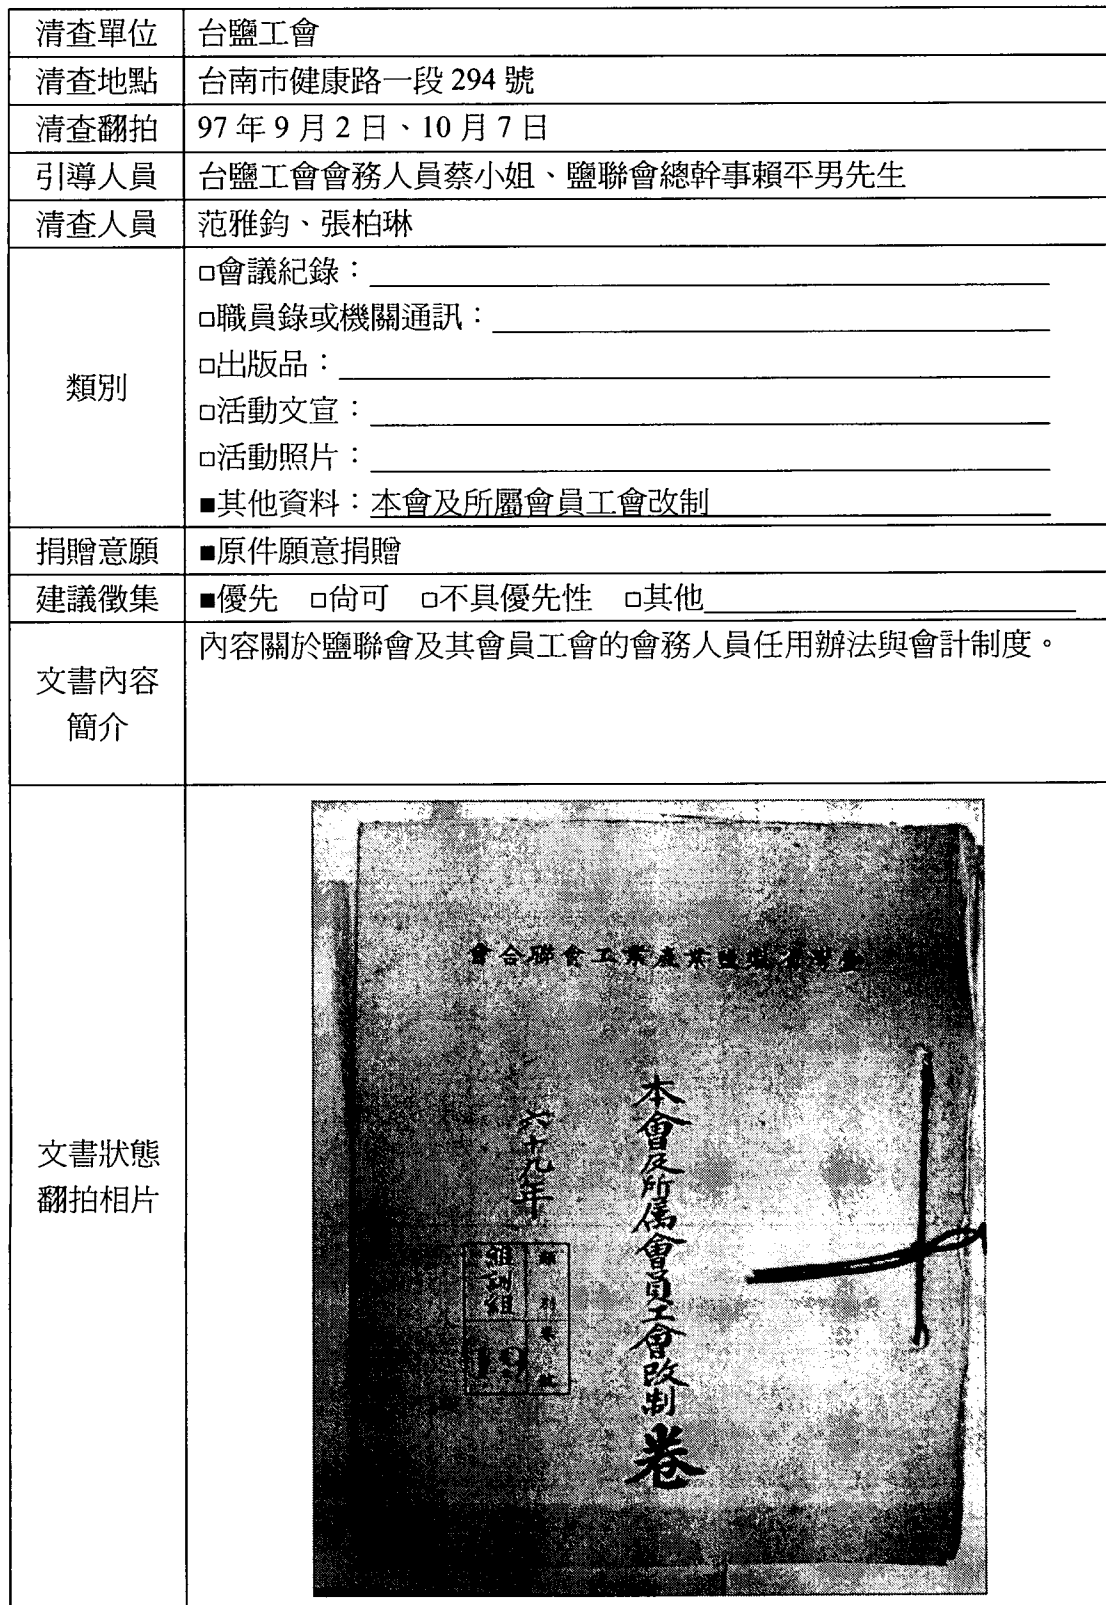 清查單位 台鹽工會
清查地點 台南市健康路一段 294 號
清查翻拍 97 年 9 月 2 日、10 月 7 日
引導人員 台鹽工會會務人員蔡小姐、鹽聯會總幹事賴平男先生
清查人員 范雅鈞、張柏琳
類別
□會議紀錄：
□職員錄或機關通訊：
□出版品：
□活動文宣：
□活動照片：
■其他資料：本會及所屬會員工會改制
捐贈意願 ■原件願意捐贈
建議徵集 ■優先 □尚可 □不具優先性 □其他
文書內容
簡介
內容關於鹽聯會及其會員工會的會務人員任用辦法與會計制度。
文書狀態
翻拍相片
會合聯會工業產業鹽
本會及所属會員工會改制卷
六十九年
類別
組訓組
案號
19